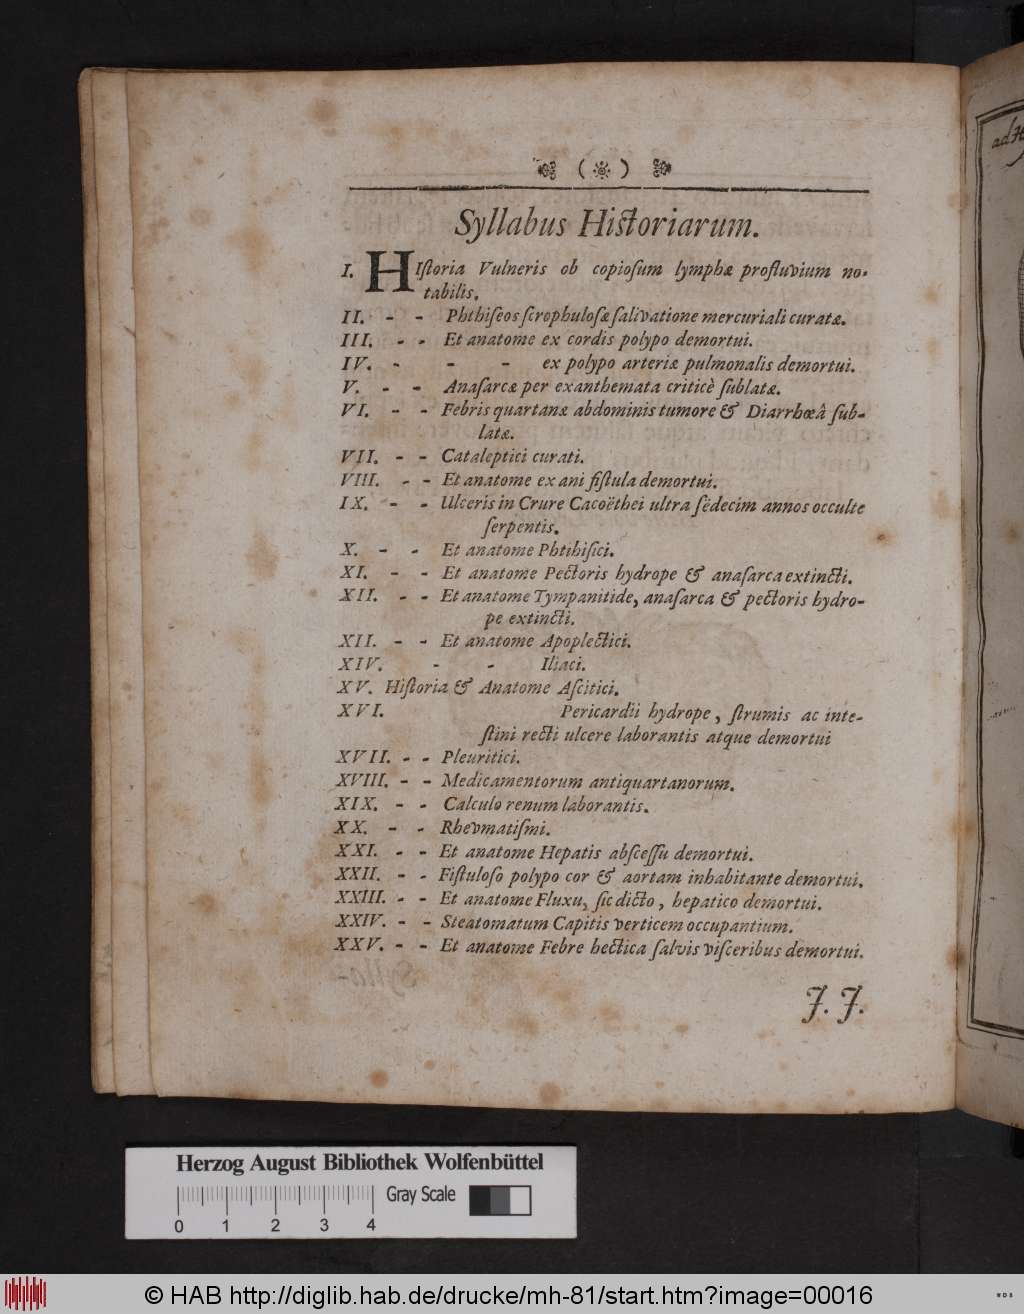 ( )
Syllabus Historiarum.
I. HIſtoria Vulneris ob copioſum lymphæ profluvium no-
tabilis.
II. - - Phthiſeos ſcrophuloſæ ſalivatione mercuriali curatæ.
III. - - Et anatome ex cordis polypo demortui.
IV. - - - ex polypo arteriæ pulmonalis demortui.
V. - - Anaſarcæ per exanthemata criticè ſublatæ.
VI. - - Febris quartanæ abdominis tumore & Diarrhœâ ſub-
latæ.
VII. - - Cataleptici curati.
VIII. - - Et anatome ex ani fiſtula demortui.
IX. - - Ulceris in Crure Cacoëthei ultra ſedecim annos occulte
ſerpentis.
X. - - Et anatome Phtihiſici.
XI. - - Et anatome Pectoris hydrope & anaſarca extincti.
XII. - - Et anatome Tympanitide, anaſarca & pectoris hydro-
pe extincti.
XII. - - Et anatome Apoplectici.
XIV. - - Iliaci.
XV. Hiſtoria & Anatome Aſcitici.
XVI. Pericardii hydrope, ſtrumis ac inte-
ſtini recti ulcere laborantis atque demortui
XVII. - - Pleuritici.
XVIII. - - Medicamentorum antiquartanorum.
XIX. - - Calculo renum laborantis.
XX. - - Rhevmatiſmi.
XXI. - - Et anatome Hepatis abſceſſu demortui.
XXII. - - Fiſtuloſo polypo cor & aortam inhabitante demortui.
XXIII. - - Et anatome Fluxu, ſic dicto, hepatico demortui.
XXIV. - - Steatomatum Capitis verticem occupantium.
XXV. - - Et anatome Febre hectica ſalvis viſceribus demortui.
J. J.
Herzog August Bibliothek Wolfenbüttel
Gray Scale
0 1 2 3 4
© HAB http://diglib.hab.de/drucke/mh-81/start.htm?image=00016